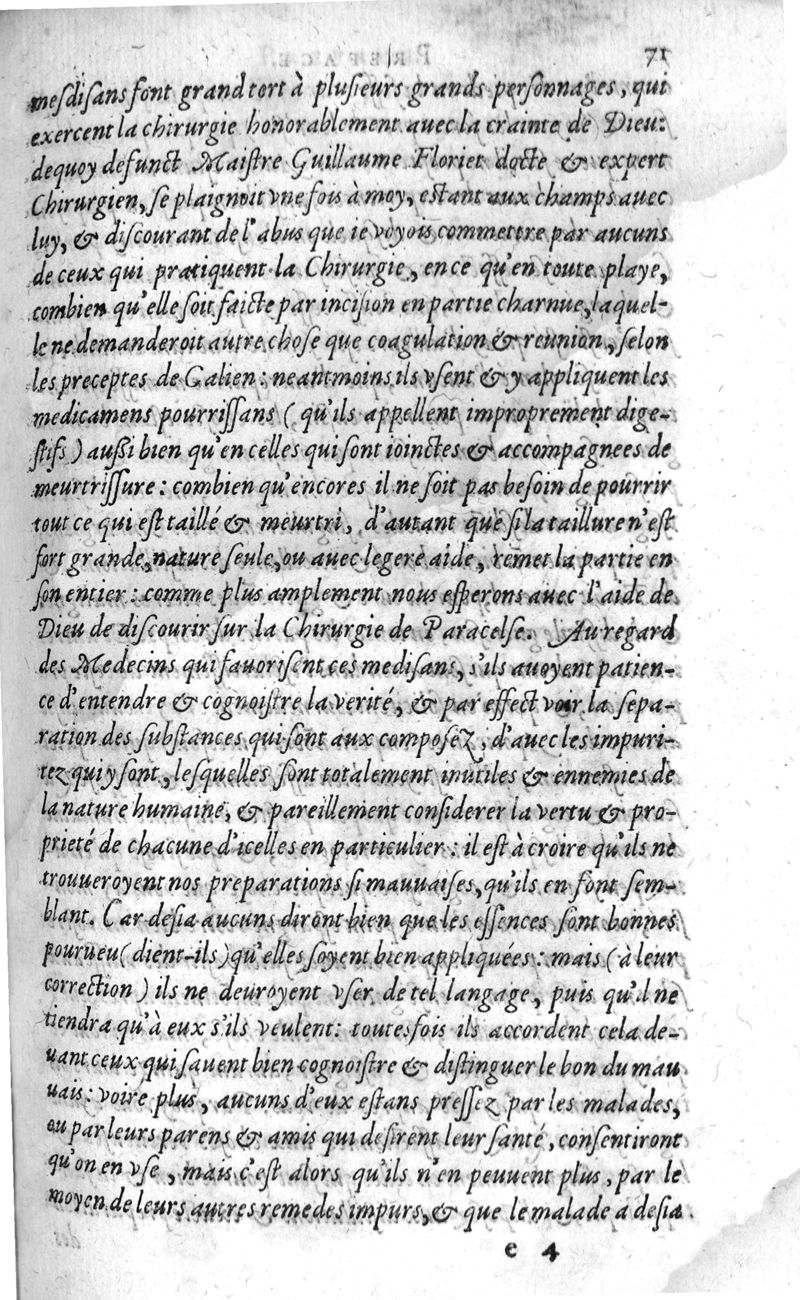 71
mesdisans font grand tort à plusieurs grands personnages, qui
exercent la chirurgie honorablement auec la crainte de Dieu:
dequoy defunct Maistre Guillaume Floriet docte & expert
Chirurgien, se plaignoit vne fois à moy, estant aux champs auec
luy, & discourant de l'abus que ie voyois commettre par aucuns
de ceux qui pratiquent la Chirurgie, en ce qu'en toute playe,
combien qu'elle soit faicte par incision en partie charnue, laquel-
le ne demanderoit autre chose que coagulation & reunion, selon
les preceptes de Galien: neantmoins ils vsent & y appliquent les
medicamens pourrissans (qu'ils appellent improprement dige-
stifs) aussi bien qu'en celles qui sont ioinctes & accompagnees de
meurtrissure: combien qu'encores il ne soit pas besoin de pourrir
tout ce qui est taillé & meurtri, d'autant que si la taillure n'est
fort grande, nature seule, ou auec legere aide, remet la partie en
son entier: comme plus amplement nous esperons auec l'aide de
Dieu de discourir sur la Chirurgie de Paracelse. Au regard
des Medecins qui fauorisent ces medisans, s'ils auoyent patien-
ce d'entendre & cognoistre la verité, & par effect voir la sepa-
ration des substances qui sont aux composez, d'auec les impuri-
tez qui y sont, lesquelles sont totalement inutiles & ennemies de
la nature humaine, & pareillement considerer la vertu & pro-
prieté de chacune d'icelles en particulier: il est à croire qu'ils ne
trouueroyent nos preparations si mauuaises, qu'ils en font sem-
blant. Car desia aucuns diront bien que les essences sont bonnes
pourueu (dient-ils) qu'elles soyent bien appliquées: mais (à leur
correction) ils ne deuroyent vser de tel langage, puis qu'il ne
tiendra qu'à eux s'ils veulent: toutesfois ils accordent cela de-
uant ceux qui sauent bien cognoistre & distinguer le bon du mau
uais: voire plus, aucuns d'eux estans pressez par les malades,
ou par leurs parens & amis qui desirent leur santé, consentiront
qu'on en vse, mais c'est alors qu'ils n'en peuuent plus, par le
moyen de leurs autres remedes impurs, & que le malade a desia
e 4